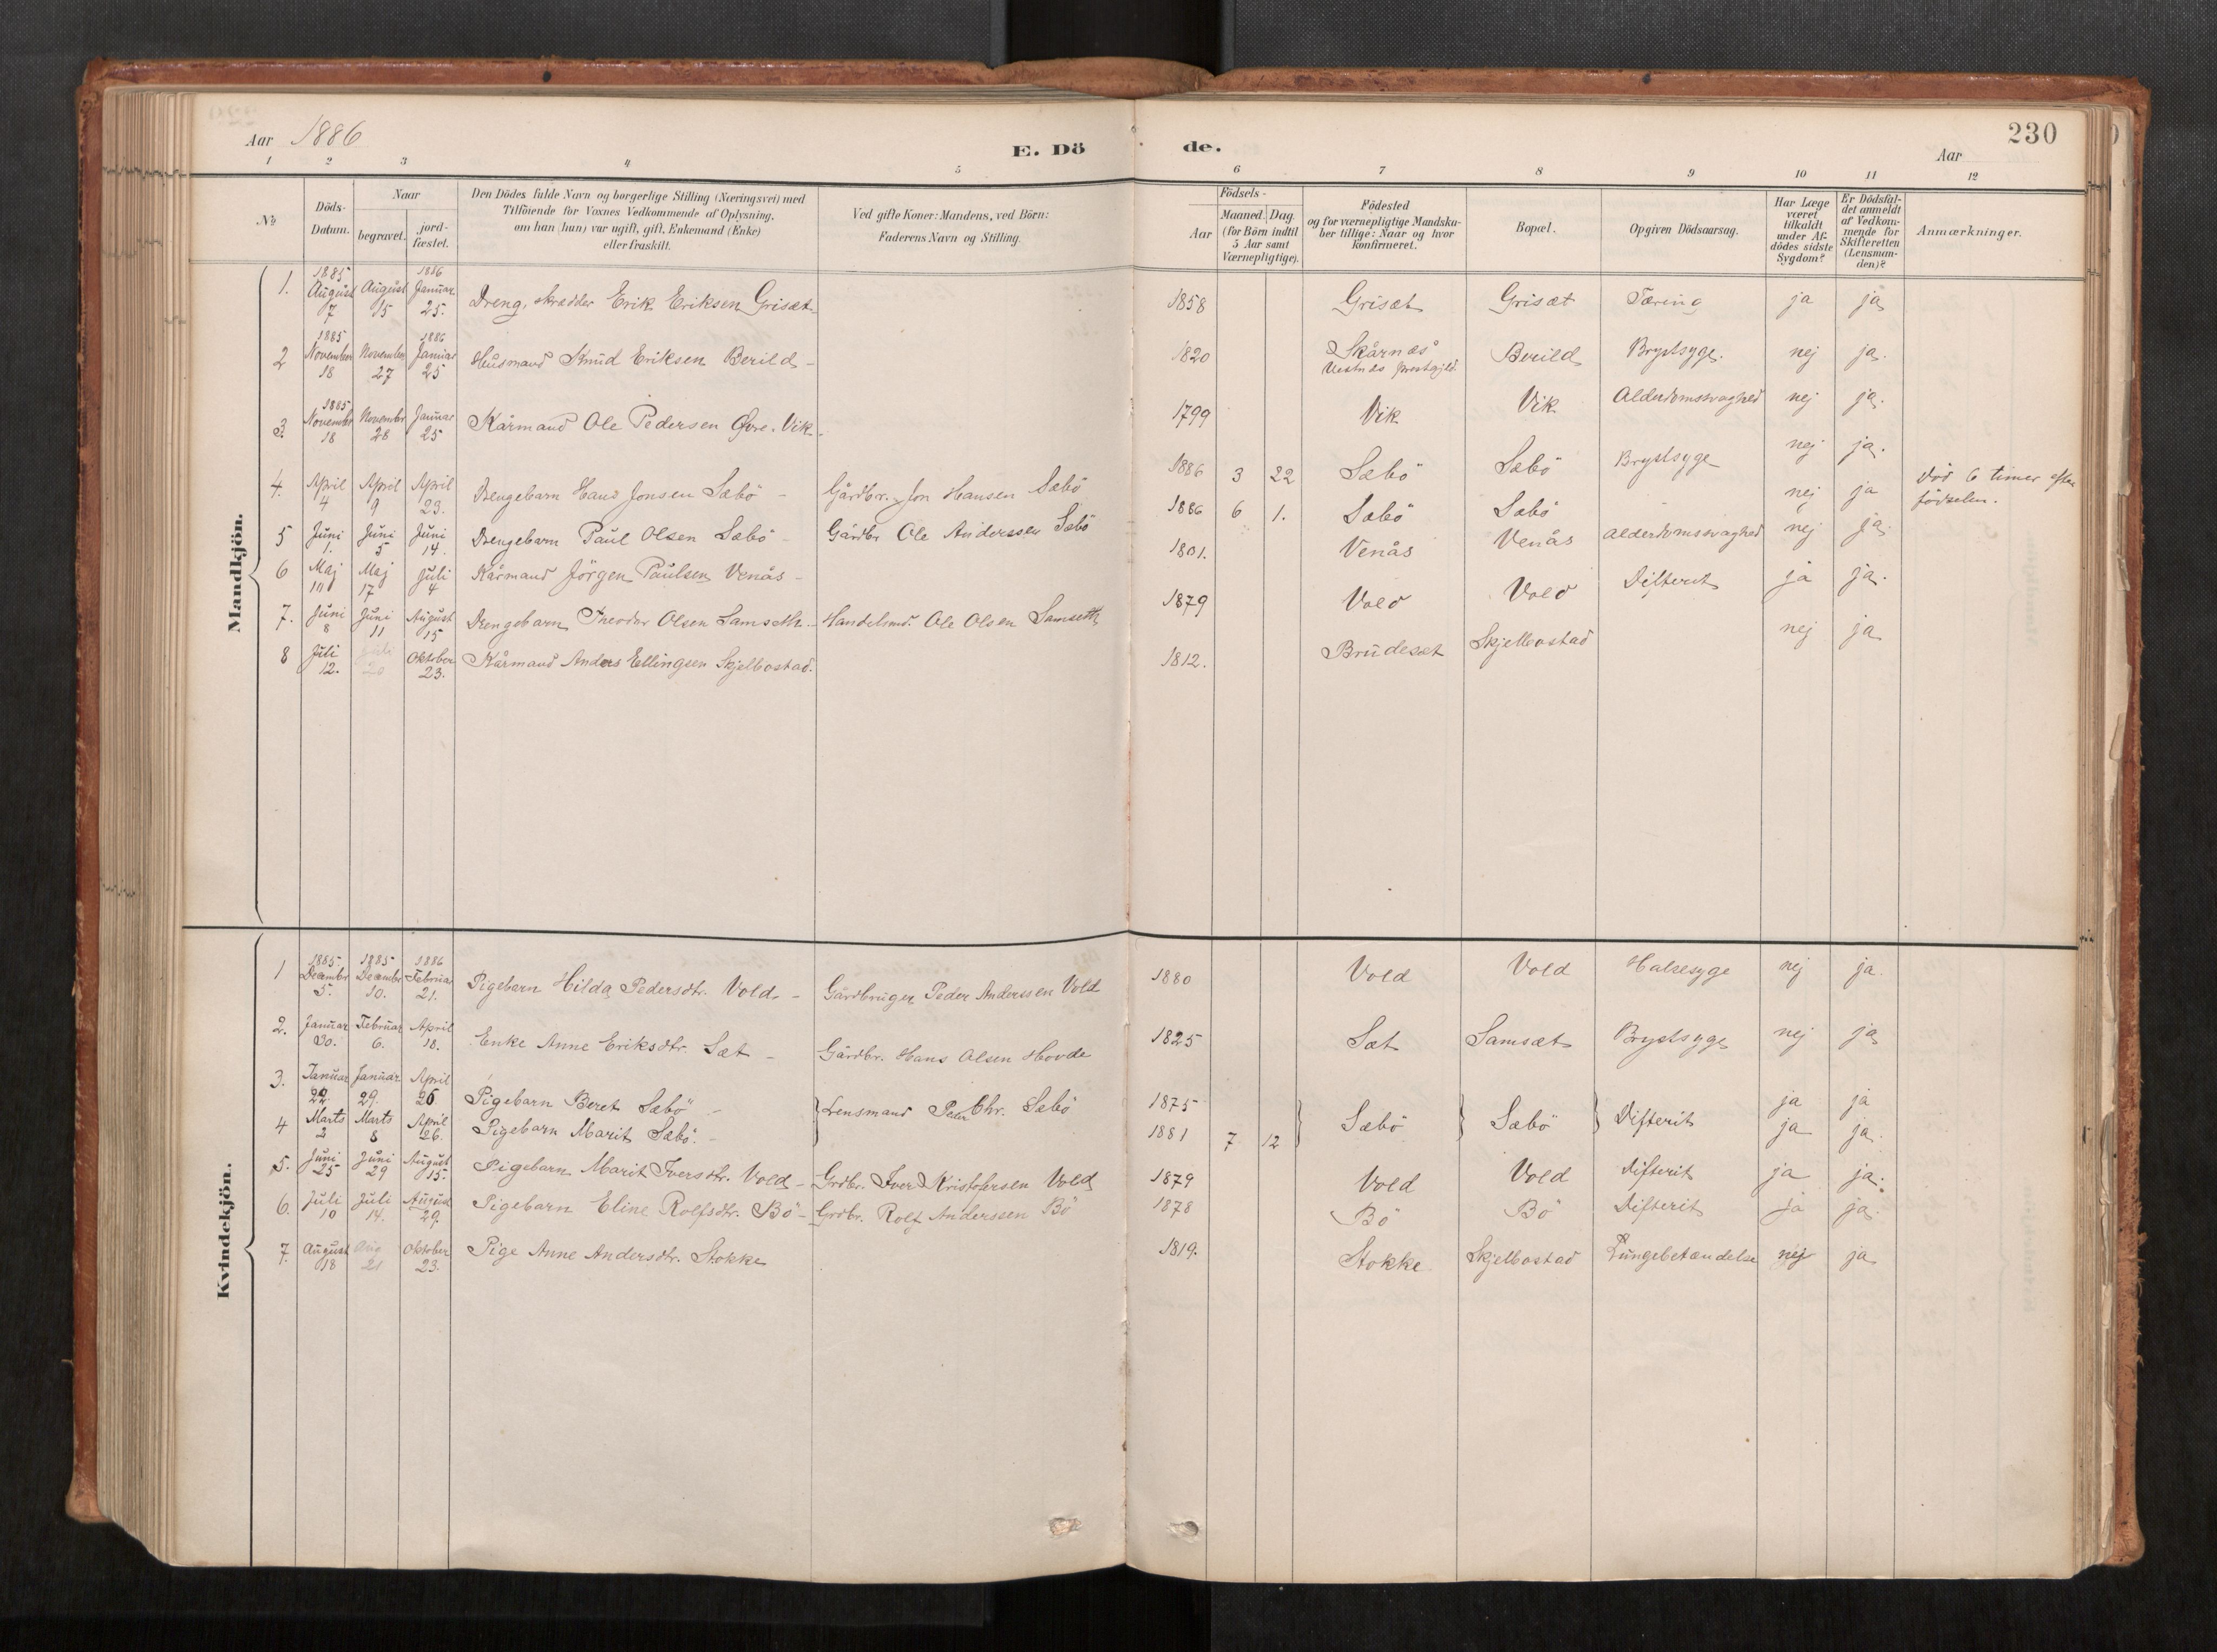 Aar 1886
E. Dö
de.
Aar
230
1 2 3 4 5 6 7 8 9 10 11 12
No
Döds-Datum.
Naar
begravet.
jord-fæstet.
Den Dödes fulde Navn og borgerlige Stilling (Næringsvei) med
Tilföiende for Voxnes Vedkommende af Oplysning,
om han (hun) var ugift, gift, Enkemand (Enke)
eller fraskilt.
Ved gifte Koner: Mandens, ved Börn:
Faderens Navn og Stilling.
Födsels-
Aar
Maaned. Dag.
(for Börn indtil
5 Aar samt
Værnepligtige).
Födested
og for værnepligtige Mandska-
ber tillige: Naar og hvor
konfirmeret.
Bopæl.
Opgiven Dödsaarsag.
Har Læge
været
tilkaldt
under Af-
dödes sidste
Sygdom?
Er Dödsfal-
det anmeldt
af Vedkom-
mende for
Skifteretten
(Lensman-
den)?
Anmærkninger.
Mandkjön.
1. 1885 August 7 August 15 1886 Januar 25. Dreng, skrædder Erik Eriksen Grisæt 1858 Grisæt Grisæt Tæring ja ja
2 1885 November 18 November 27 1886 Januar 25 Husmand Knud Eriksen Berild 1820 Skårnæs Vestnæs prestgjld. Berild Brystsyge. nej ja.
3. 1885 Novembr 18 Novembr 28 Januar 25 Kårmand Ole Pedersen Øvre. Vik 1799 Vik Vik Alderdomssvaghed nej ja.
4. April 4 April 9 April 23. Drengebarn Hans Jonsen Sæbö Gårdbr. Jon Hansen Sæbö 1886 3 22 Sæbö Sæbö Brystsyge nej ja.
5 Juni 1. Juni 5 Juni 14. Drengebarn Paul Olsen Sæbö Gårdbr Ole Anderssen Sæbö 1886 6 1. Sæbö Sæbö nej ja död 6 timer efter födselen.
6 Maj 10 Maj 17 Juli 4 Kårmand Jörgen Paulsen Venås 1801. Venås Venås Alderdomssvaghed nej ja.
7. Juni 8 Juni 11 August 15 Drengebarn Theodor Olsen Samseth Handelsmd. Ole Olsen Samseth 1879 Vold Vold Difterit ja ja.
8 Juli 12. Juli 20 Oktober 23. Kårmand Anders Ellingsen Skjelbostad. 1812. Brudesæt Skjelbostad nej ja
Kvindekjön.
1 1885 Decembr 5. 1885 Decembr 10. 1886 Februar 21. Pigebarn Hilda Pedersdtr. Vold Gårdbruger Peder Anderssen Vold 1880 Vold Vold Halsesyge nej ja.
2. Januar 30. Februar 6. April 18. Enke Anne Eriksdtr. Sæt Gårdbr. Hans Olsen Hovde 1825 Sæt Samsæt Brystsyge nej ja
3. Januar 22. Januar 29. April 26 Pigebarn Beret Sæbö Lensmand Peter Chr. Sæbö 1875 Sæbö Sæbö Difterit ja ja
4 Marts 2 Marts 8 April 26. Pigebarn Marit Sæbö. 1881 7 12 ja ja.
5. Juni 25 Juni 29 August 15. Pigebarn Marit Iversdtr. Vold Grdbr. Iver Kristofersen Vold 1879 Vold Vold Difterit ja ja.
6. Juli 10 Juli 14. August 29. Pigebarn Eline Rolfsdtr. Bö Grdbr. Rolf Anderssen Bö 1878 Bö Bö Difterit ja ja.
7. August 18 Aug 21 Oktober 23. Pige Anne Andersdtr. Stokke 1819. Stokke Skjelbostad Lungebetændelse nej ja